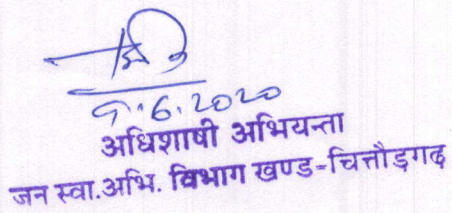 9.6.2020
अधिशाषी अभियन्ता
जन स्वा.अभि. विभाग खण्ड-चित्तौड़गढ़